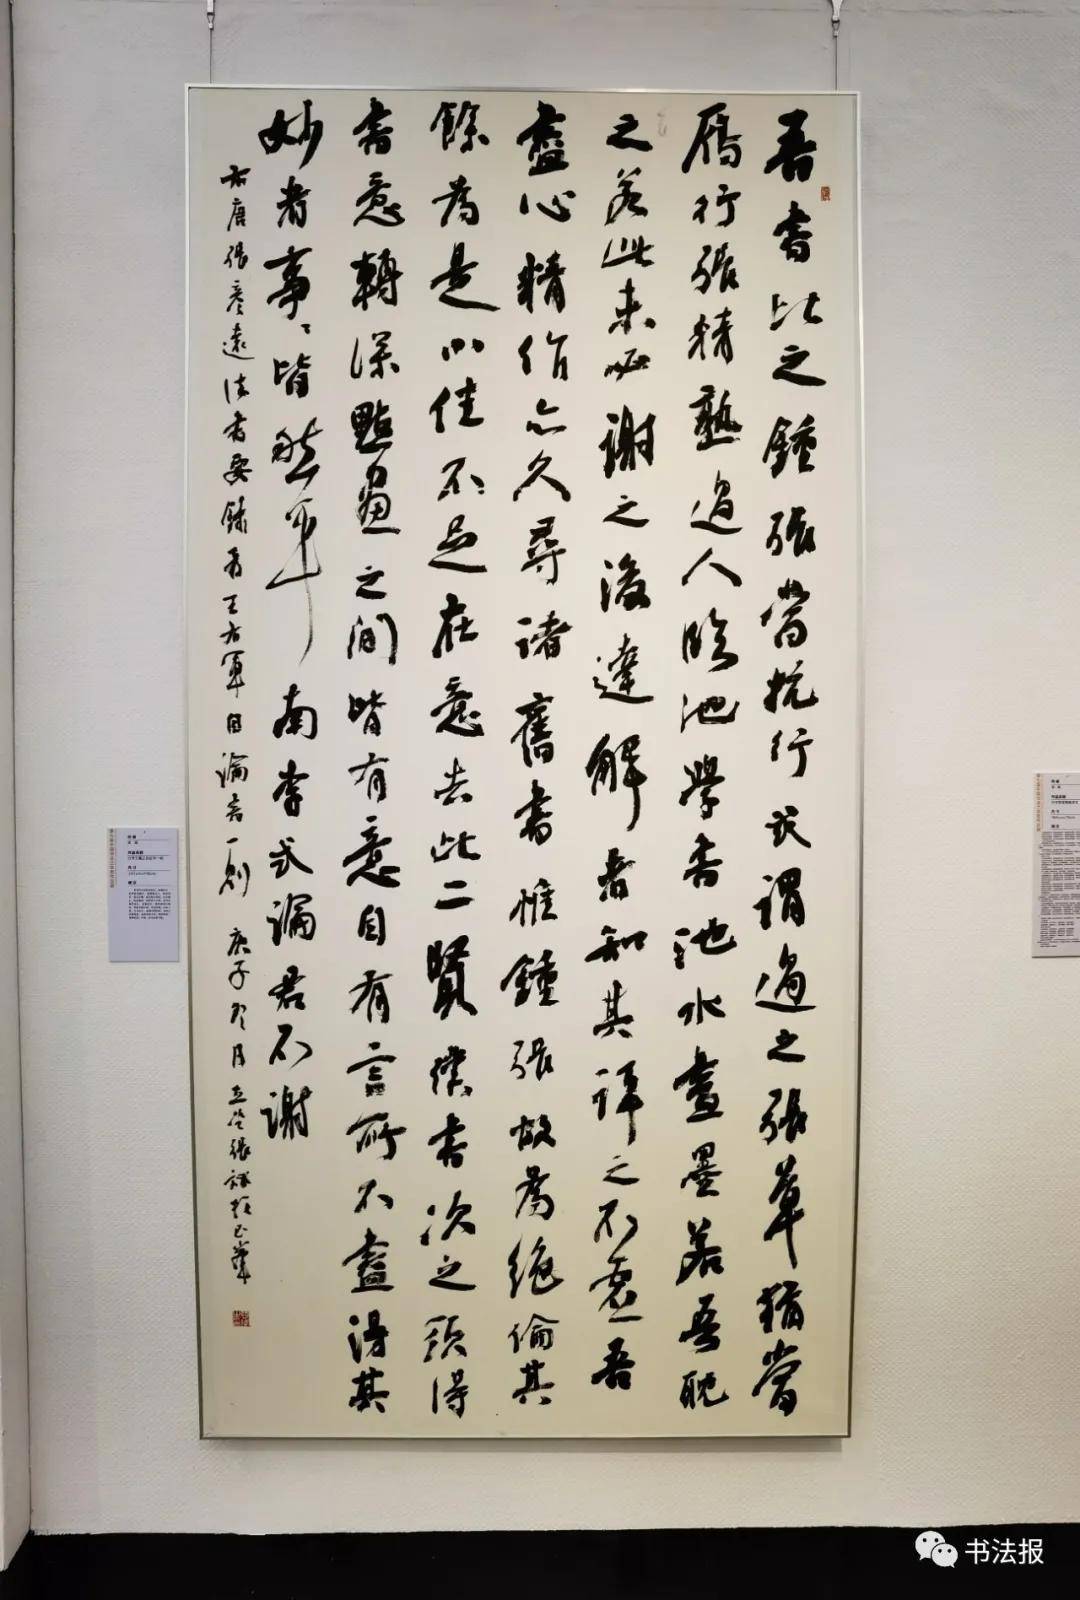 吾書比之鍾張當抗行或謂過之張草猶當
雁行張精熟過人臨池學書池水盡墨若吾耽
之若此未必謝之後達解者知其評之不虛吾
盡心精作亦久尋諸舊書惟鍾張故為絕倫其
餘為是小佳不足在意去此二賢僕書次之須得
書意轉深點畫之間皆有意自有言所不盡得其
妙者事〻皆然平南李式論君不謝
右唐張彥遠法書要錄有王右軍自論書一則 庚子 月 張
书法报